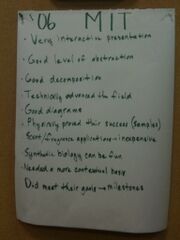 '06 MIT
• Very interactive presentation
• Good level of abstraction
• Good decomposition
• Technically advanced the field
• Good diagrams
• Physically proved their success (samples)
• Scent/fragrance applications → inexpensive
• Synthetic biology can be fun
• Needed a more contextual basis
• Did meet their goals → milestones